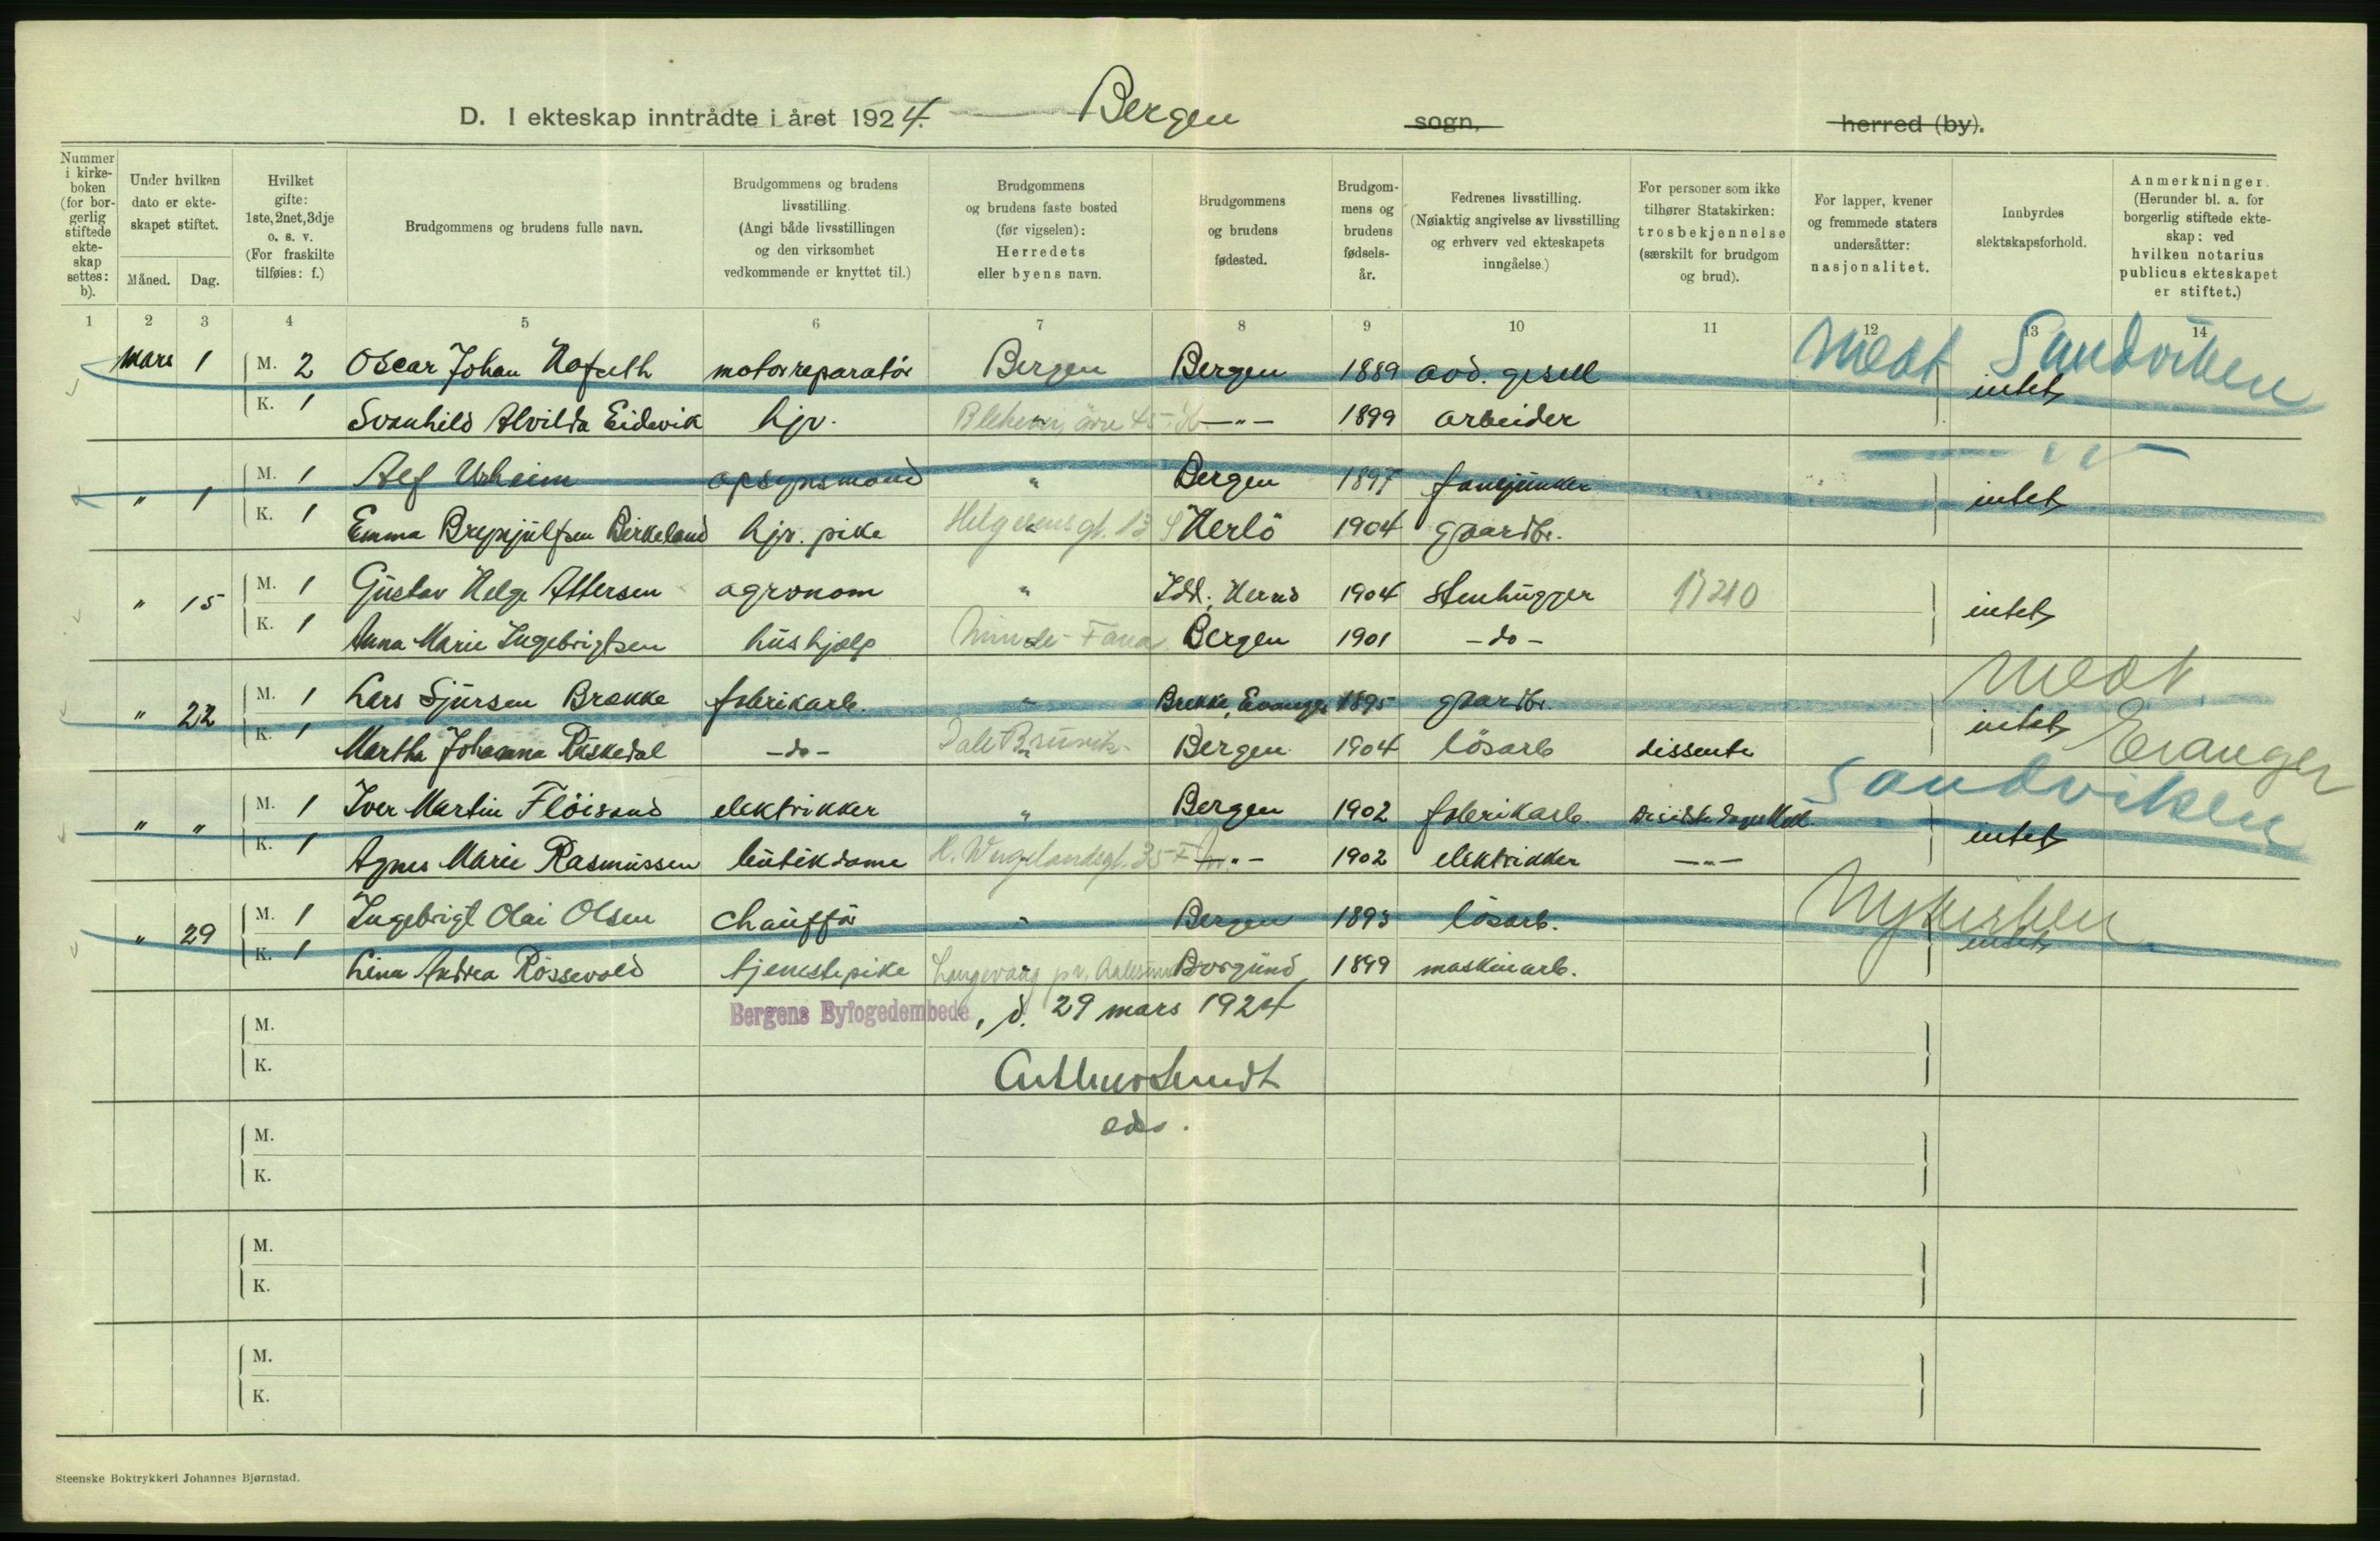 D. I ekteskap inntrådte i året 1924. Bergen sogn, herred (by).
Nummer i kirke-boken (for bor-gerlig stiftede ekte-skap settes: b).
Under hvilken dato er ekte-skapet stiftet.
Måned. Dag.
Hvilket gifte: 1ste, 2net, 3dje o. s. v. (For fraskilte tilføies: f.)
Brudgommens og brudens fulle navn.
Brudgommens og brudens livsstilling. (Angi både livsstillingen og den virksomhet vedkommende er knyttet til.)
Brudgommens og brudens faste bosted (før vigselen): Herredets eller byens navn.
Brudgommens og brudens fødested.
Brudgom-mens og brudens fødsels-år.
Fedrenes livsstilling. (Nøiaktig angivelse av livsstilling og erhverv ved ekteskapets inngåelse.)
For personer som ikke tilhører Statskirken: trosbekjennelse (særskilt for brudgom og brud).
For lapper, kvener og fremmede staters undersåtter: nasjonalitet.
Innbyrdes slektskapsforhold.
Anmerkninger. (Herunder bl. a. for borgerlig stiftede ekte-skap: ved hvilken notarius publicus ekteskapet er stiftet.)
1 2 3 4 5 6 7 8 9 10 11 12 13 14
Mars 1 M. 2 Oscar Johan motorreparatör Bergen Bergen 1889 gesell Medt Sandviken
intet
K. 1 Svanhild Alvilda Eidevik hjv. 45 — " — 1899 arbeider
" 1 M. 1 Alf Urheim opsynsmand " Bergen 1897 fanejunker — " —
intet
K. 1 Emma Brynjulfsen Birkeland hjv. pike Helgesensgt. 13 Herlö 1904 gaardbr.
" 15 M. 1 Gustav Helge Attersen agronom " Idd, 1904 Stenhugger
intet
K. 1 Anna Marie Ingebrigtsen hushjælp Minde - Fana Bergen 1901 - do -
" 22 M. 1 Lars Sjursen Brække fabrikarb. " Brekke, Evanger 1895 gaardbr. Medt Evanger
intet
K. 1 Martha Johanna Ruskedal - do - Dale Bruvik Bergen 1904 lösarb dissente
" " M. 1 Iver Martin Flöisand elektrikker " Bergen 1902 fabrikarb. Sandviken
intet
K. 1 Agnes Marie Rasmussen butikdame H. Wergelandsgt. 35 — " — 1902 elektrikker — " —
" 29 M. 1 Ingebrigt Olai Olsen Chaufför " Bergen 1893 lösarb. Nykirken
intet
K. 1 Lina Andrea Rössevold tjenestepike Langevaag pr. Aalesund Borgund 1899 maskinarb.
Bergens Byfogedembede, d. 29 mars 1924
M.
K.
M.
K.
M.
K.
M.
K.
Steenske Boktrykkeri Johannes Bjørnstad.